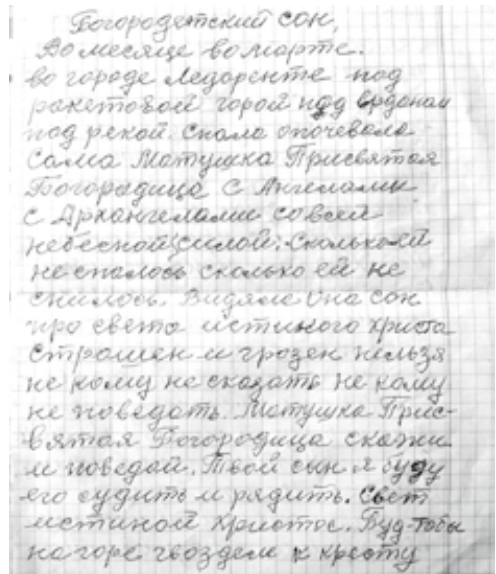 Богородетский сон,
Во месяце во марте.
во городе Ледоренте под
ракетовой горой под Ерданом
под рекой. Спала опочевала
Сама Матушка Присвятая
Богородица С Ангелами
с Архангелами со всей
небесной силой. Сколько ей
не спалось сколько ей не
снилось. Видяла Она сон
про света истиного Христа
Страшен и грозен нельзя
не кому не сказать не кому
не поведать. Матушка Прис-
вятая Богородица скажи
и поведай. Твой сын я буду
его судить и рядить. Свет
истиной Христос. Буд-тобы
на горе гвоздем к кресту